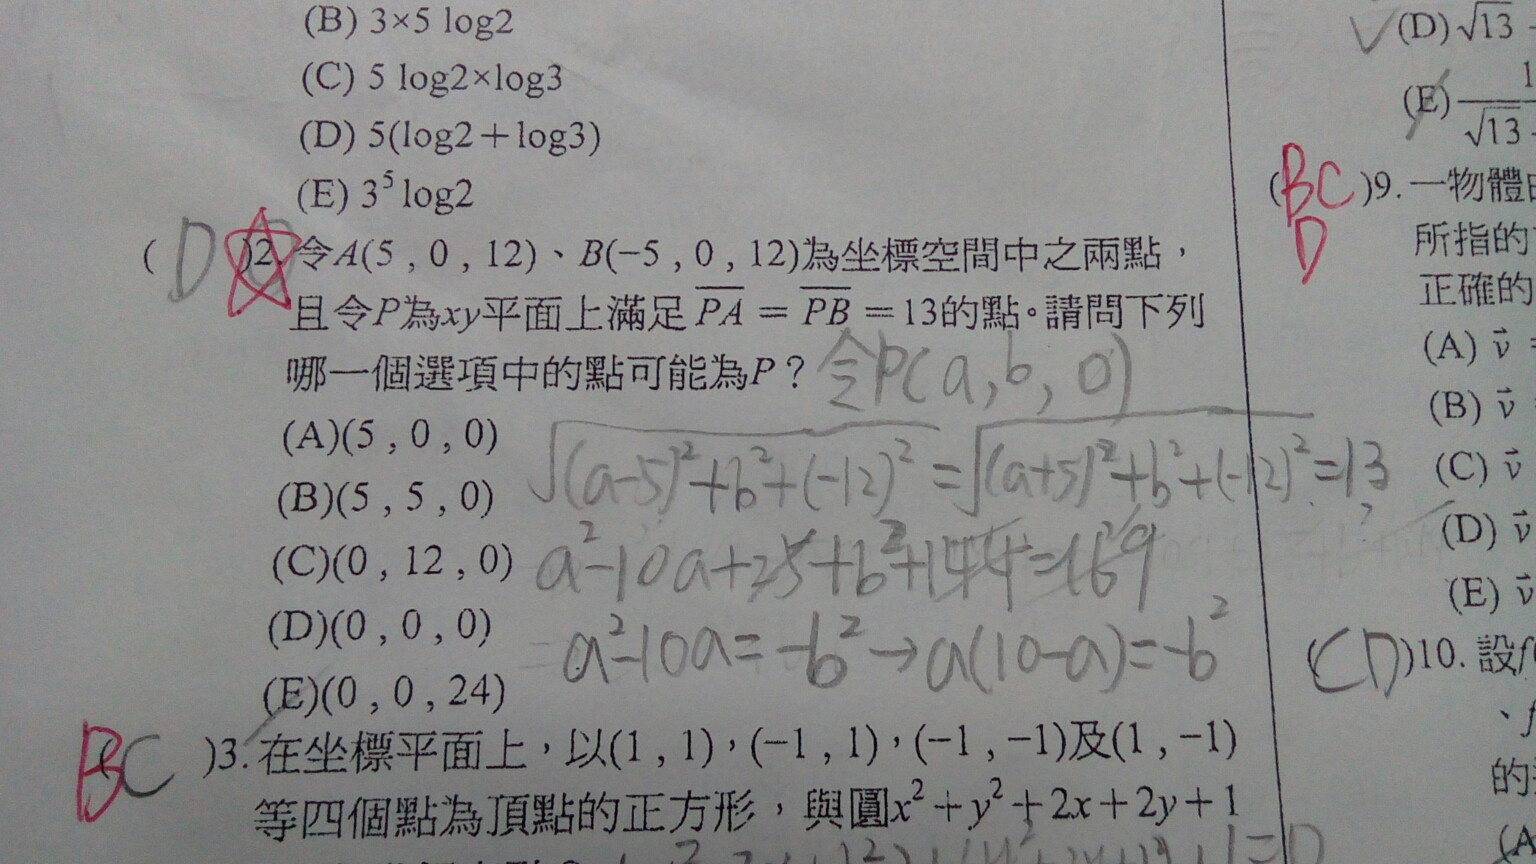 (B) 3×5 log2
(C) 5 log2×log3
(D) 5(log2+log3)
(E) 3⁵ log2
( D )2. 令A(5 , 0 , 12)、B(−5 , 0 , 12)為坐標空間中之兩點，
且令P為xy平面上滿足 PA = PB = 13的點。請問下列
哪一個選項中的點可能為P？ 令P(a, b, 0)
(A)(5 , 0 , 0)
√(a-5)²+b²+(-12)² = √(a+5)²+b²+(-12)² = 13
(B)(5 , 5 , 0)
(C)(0 , 12 , 0)
a²-10a+25+b²+144=169
(D)(0 , 0 , 0)
a²-10a=-b² → a(10-a)=-b²
(E)(0 , 0 , 24)
BC )3. 在坐標平面上，以(1 , 1)，(−1 , 1)，(−1 , −1)及(1 , −1)
等四個點為頂點的正方形，與圓x²+y²+2x+2y+1
(D) √13
(E) 1
√13
( BC )9. 一物體
D
所指的
正確的
(A) v⃗ =
(B) v⃗
(C) v⃗
(D) v⃗
(E) v⃗
( CD )10. 設f
、f
的
(A